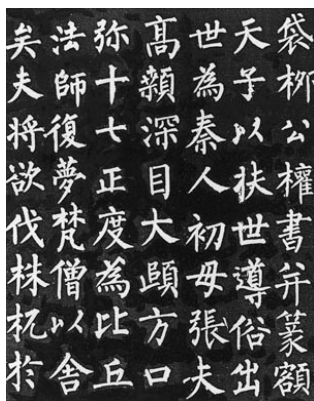 袋栁公權書并篆額
天子以扶世導俗出
世為秦人初母張夫
髙顙深目大頤方口
弥十七正度為比丘
法師復夢梵僧以舎
矣夫将欲伐株杌於